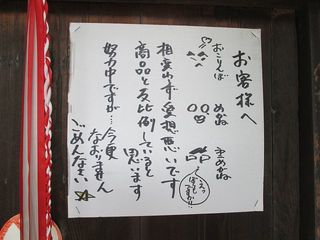 お客様へ
おこりんぼ
めがね
まめがね
えっ
ぼくも
ですか!!
相変わらず愛想悪いです
商品と反比例していると
思います
努力中ですが…今更
なおりません
ごめんなさい